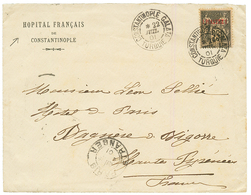 HOPITAL FRANÇAIS
DE
CONSTANTINOPLE
CONSTANTINOPLE GALATA
22
01
TURQUIE
Monsieur Léon
Hôtel de Paris
Bagnères de Bigorre
Hautes Pyrénées
France